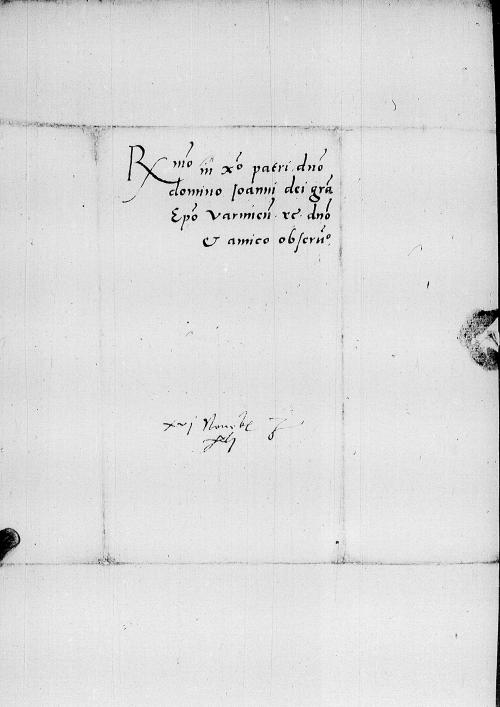 Rx mo in xo patri dno
domino Joanni dei gra
Epo Varmien̄ xc dno
& amico obseruo
xvj Nouēbr
xlj